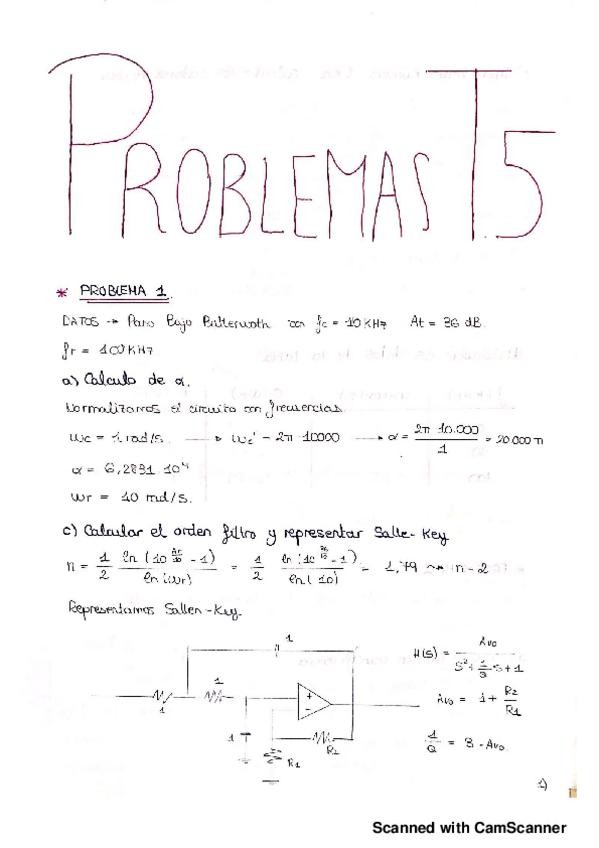 PROBLEMAS T.5
* PROBLEMA 1.
DATOS → Paso Bajo Butterworth con fc = 10 KHz At = 36 dB.
fr = 100 KHz
a) Calculo de α.
Normalizamos el circuito con frecuencias.
wc = 1 rad/s. → wc' = 2π 10000 → α = 2π 10.000 / 1 = 20000 π
α = 6,2831 10⁴
wr = 10 rad/s.
c) Calcular el orden filtro y representar Salle-Key
n = 1/2 ln(10^(At/10) - 1) / ln(wr) = 1/2 ln(10^(36/10) - 1) / ln(10) = 1,79 → n = 2
Representamos Sallen-Key.
1
H(s) = Avo / s² + 1/Q s + 1
1
1
+
-
Avo = 1 + R2/R1
1
R2
R1
1/Q = 3 - Avo.
1)
Scanned with CamScanner